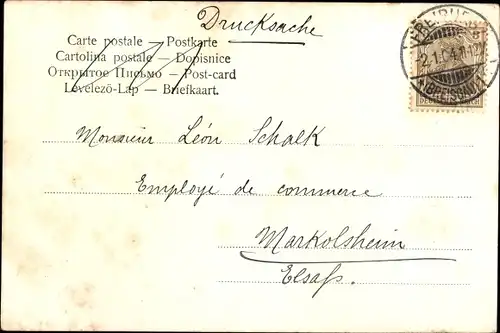 Drucksache
Carte postale — Postkarte
Cartolina postale — Dopisnice
Открытое Письмо — Post-card
Levelezö-Lap — Briefkaart.
Monsieur Léon Schalk
Employé de commerce
Markolsheim
Elsaß.